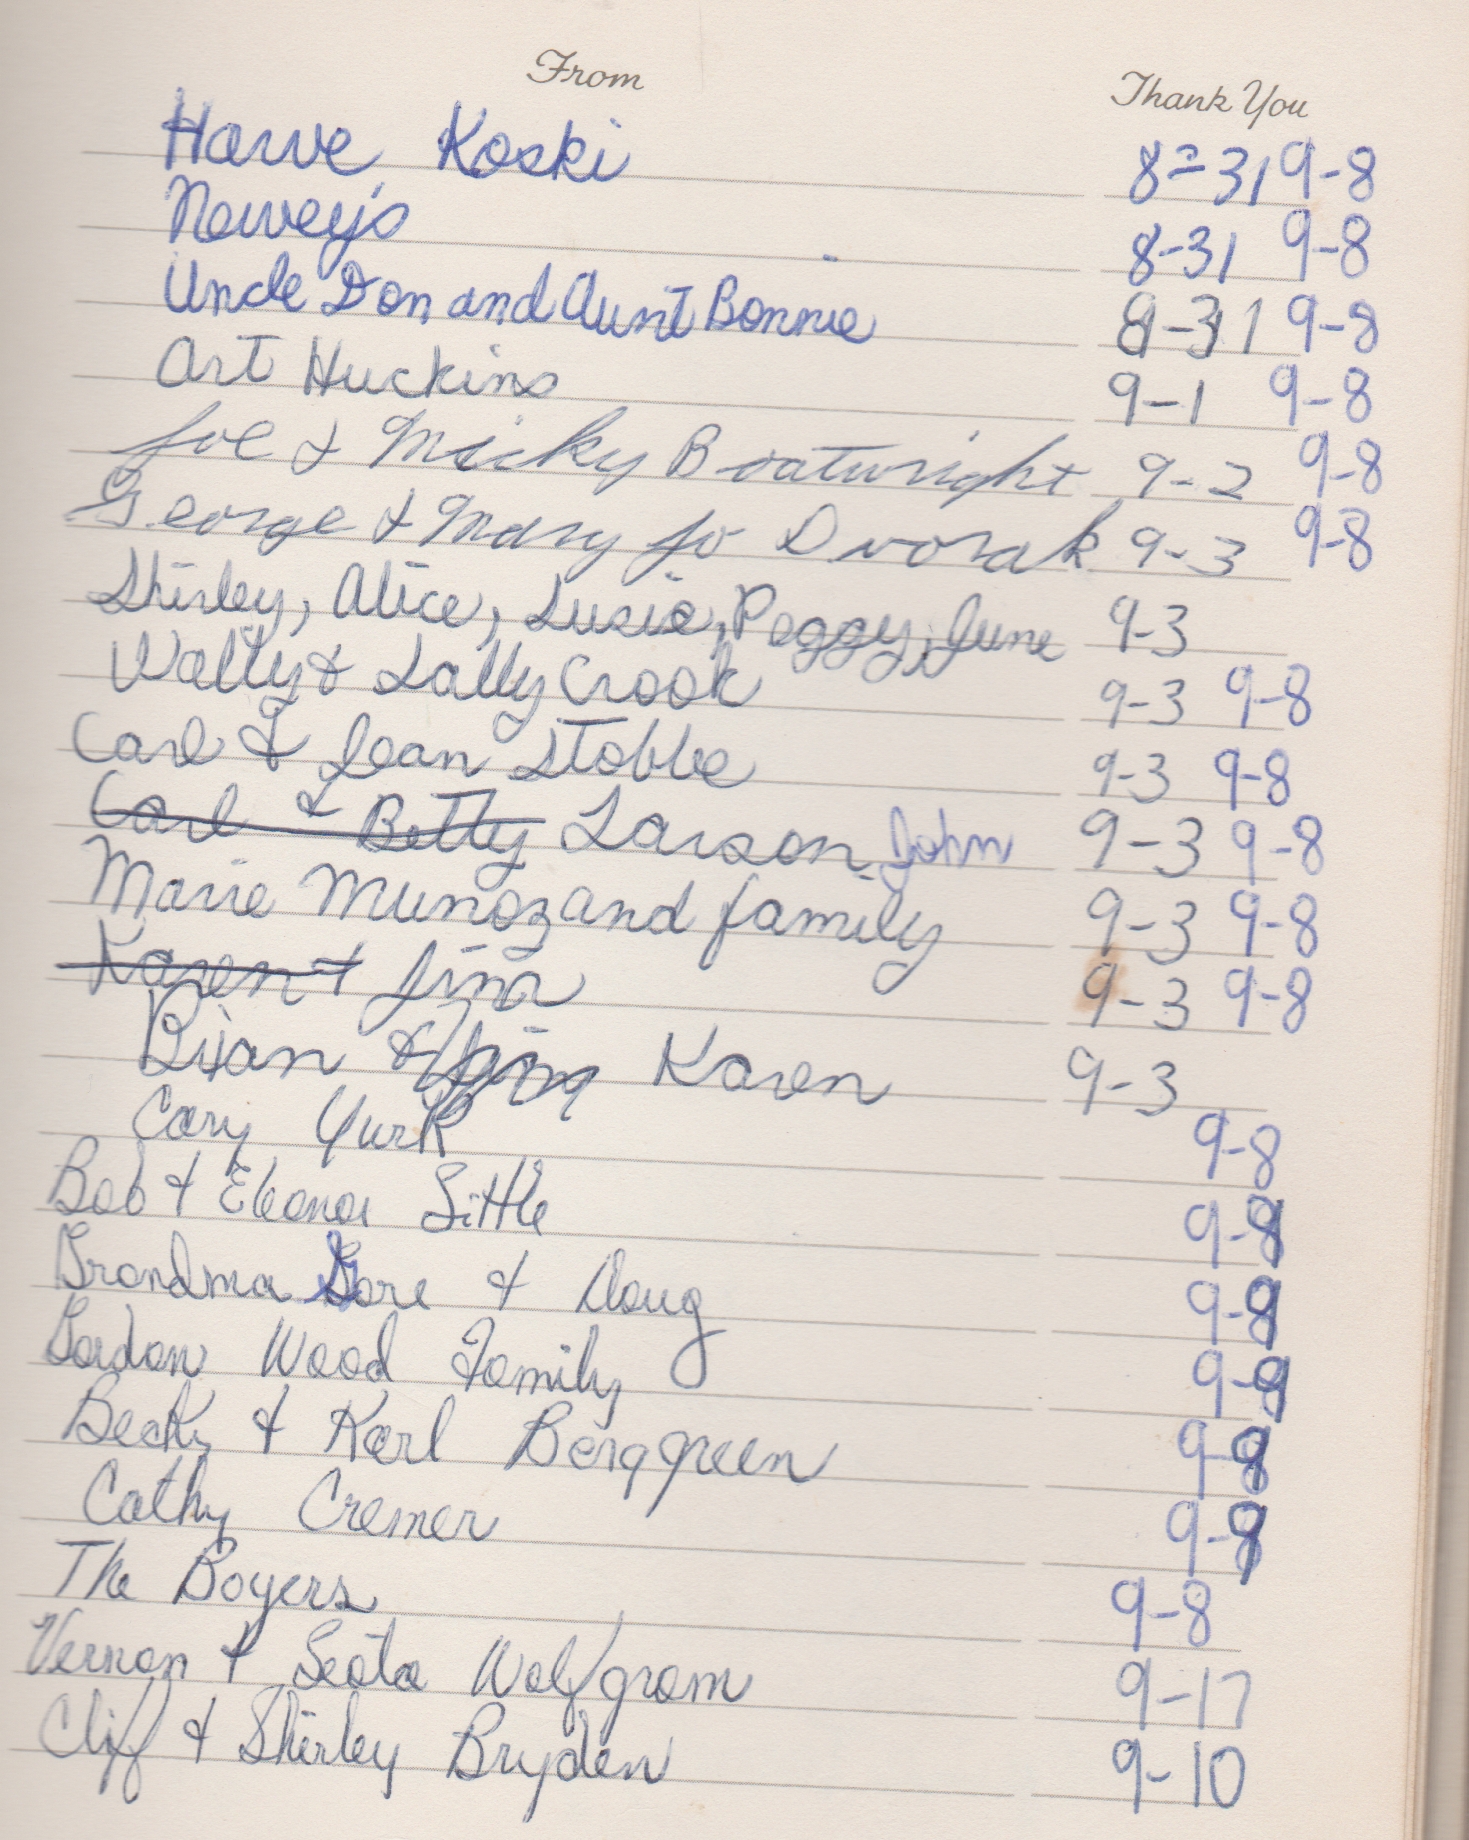 From Thank You
Harve Koski 8-31 9-8
Newey's 8-31 9-8
Uncle Don and Aunt Bonnie 8-31 9-8
Art Huckins 9-1 9-8
Joe & Micky Boatwright 9-2 9-8
George & Mary Jo Dvorak 9-3 9-8
Shirley, Alice, Susie, Peggy, June 9-3
Wally & Sally Crook 9-3 9-8
Carl & Jean Stobbe 9-3 9-8
Carl & Betty Larson, John 9-3 9-8
Marie Munoz and family 9-3 9-8
Karen & Jina 9-3 9-8
Brian & Karen 9-3
Cary Yurk 9-8
Bob & Eleanor Little 9-9
Grandma Gore & Doug 9-9
Gordon Wood Family 9-9
Becky & Karl Berggreen 9-9
Cathy Cremer 9-9
The Boyers 9-8
Vernon & Leota Wolfgram 9-17
Cliff & Shirley Bryden 9-10